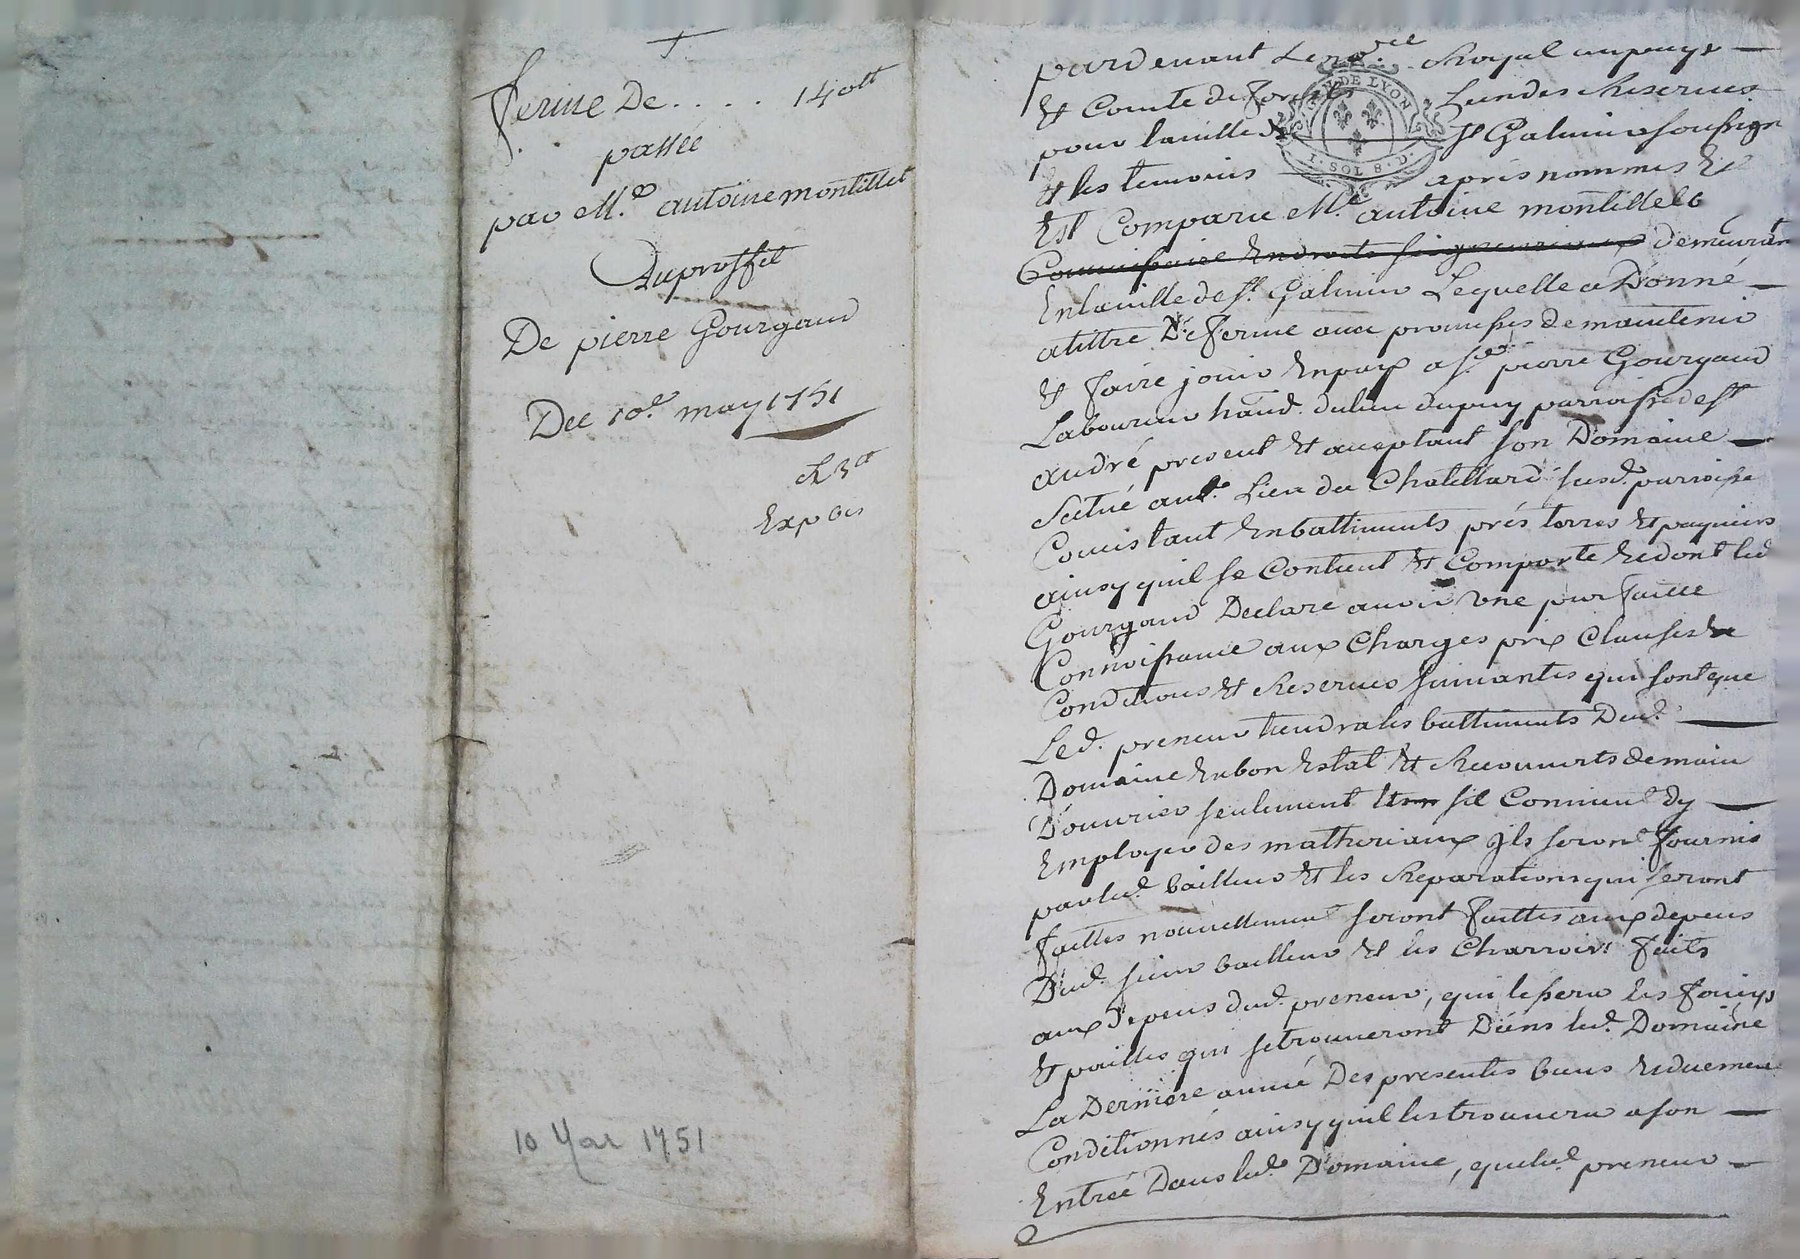 ferme De.... 140tt
passée
par M.e antoine montillet
Auproffit
De pierre Gourgaud
Dee 10.e may 1751
Exp
10 Mai 1751
pardevant Le no.re Royal aupays
& Comte de forests Lundes Reservés
pour laville de st Galmier soussigné
& les temoins apres nommés &
Est Comparu M.e antoine montillet
Commissaire Endroits seigneuriaux demeurant
Enlaville de st. Galmier Lequelle a Donné
atittre De ferme avec promesses demaintenir
& faire jouir Enpaix a sr pierre Gourgaud
Laboureur habd. dulieu dupuy parroisse de st
andré present & aceptant son Domaine
scitué aud. Lieu du Chatellard susd. parroisse
Concistant Enbattiments prés terres & paquiers
ainsy quil se Contient & Comporte & dont led
Gourgaud Declare avoir une parfaitte
Connoissance aux Charges prix Clauses
Conditions & Reserves suivantes qui sont que
Led. preneur tiendra les battiments Dud.
Domaine Enbon Estat & Recouverts demain
D'ouvrier seulement sil Convient dy
Employer des matheriaux ils seront fournis
par led. bailleur & les Reparations qui seront
faittes nouvellement seront faittes aux depens
Dud. sieur bailleur & les Charrois faits
aux depens dud. preneur, qui lessera les foings
& pailles qui setrouveront Dans led. Domaine
La Derniere année Des presentes biens & duement
Conditionnés ainsy quil les trouvera a son
Entreé Dans led. Domaine, que led. preneur
GEN DE LYON
1. SOL 8. D.